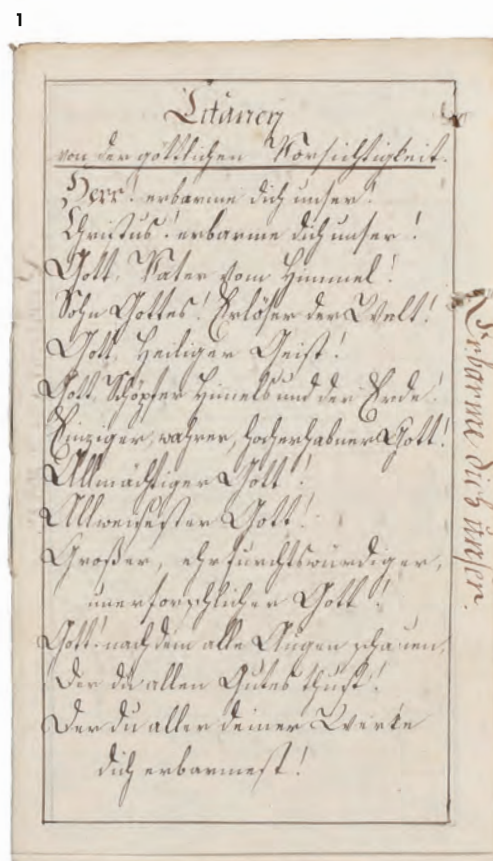 1
Litaney
von der göttlichen Vorsichtigkeit.
Herr! erbarme dich unser!
Christus! erbarme dich unser!
Gott, Vater vom Himmel!
Sohn Gottes! Erlöser der Welt!
Gott, heiliger Geist!
Gott, Schöpfer Himels und der Erde!
Einziger, wahrer, hocherhabner Gott!
Allmächtiger Gott!
Allweisester Gott!
Großer, ehrfurchtswürdiger,
unerforschlicher Gott!
Gott! nach dem alle Augen schauen,
Der du allen Gutes thust!
Der du aller deiner Werke
dich erbarmest!
Erbarme dich unser.